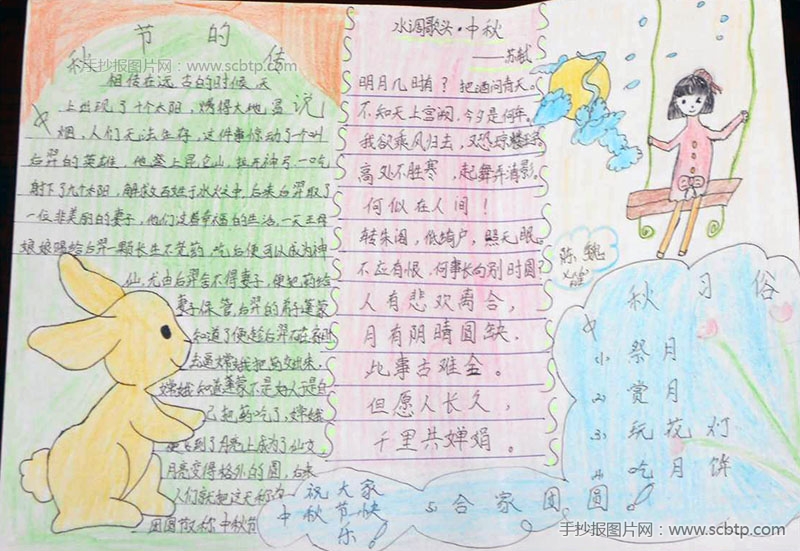 中秋节的传说
相传在远古的时候,天
上出现了十个太阳,烤得大地冒
烟,人们无法生存,这件事惊动了一个叫
后羿的英雄,他登上昆仑山,拉开神弓,一口气
射下了九个太阳,解救百姓于水火之中,后来后羿取了
一位非美丽的妻子,他们过着幸福的生活,一天王母
娘娘赐给后羿一颗长生不死药,吃后便可以成为神
仙,尤由后羿舍不得妻子,便把药给
妻子保管,后羿的弟子蓬蒙
知道了便趁后羿不在家时
去逼嫦娥把药交出来,
嫦娥知道蓬蒙不是好人于是自
己把药吃了,嫦娥
飞到了月亮上成为了仙女,
月亮变得格外的圆,后来
人们就把这天称为
团圆故称中秋节
水调歌头·中秋
——苏轼
明月几时有?把酒问青天。
不知天上宫阙,今夕是何年。
我欲乘风归去,又恐琼楼玉宇。
高处不胜寒,起舞弄清影。
何似在人间!
转朱阁,低绮户,照无眠。
不应有恨,何事长向别时圆?
人有悲欢离合,
月有阴晴圆缺,
此事古难全。
但愿人长久,
千里共婵娟。
陈 魏
中秋习俗
1、祭月
2、赏月
3、玩花灯
4、吃月饼
5、合家团圆
祝大家
中秋节快
乐!
手抄报图片网:www.scbtp.com
手抄报图片网:www.scbtp.com